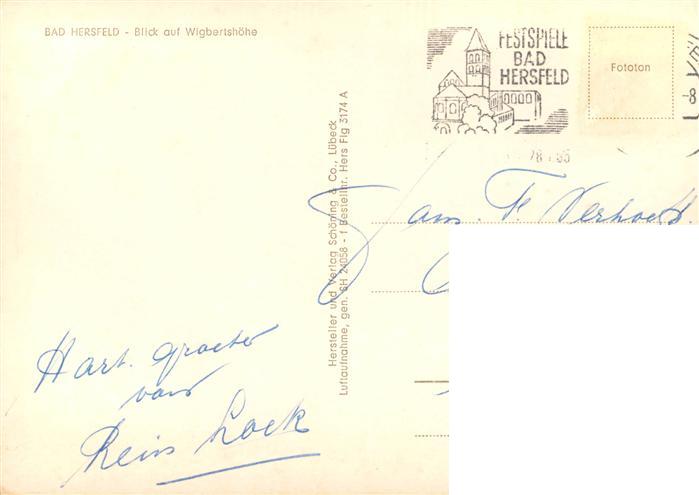 BAD HERSFELD - Blick auf Wigbertshöhe
FESTSPIELE
BAD
HERSFELD
Fototon
-8
Fam. F. Verhoef.
Hersteller und Verlag Schöning & Co., Lübeck
Luftaufnahme, gen. SH 24058 - 1 Bestellnr. Hers Flg 3174 A
Hart. groeten
van
Rein Loek